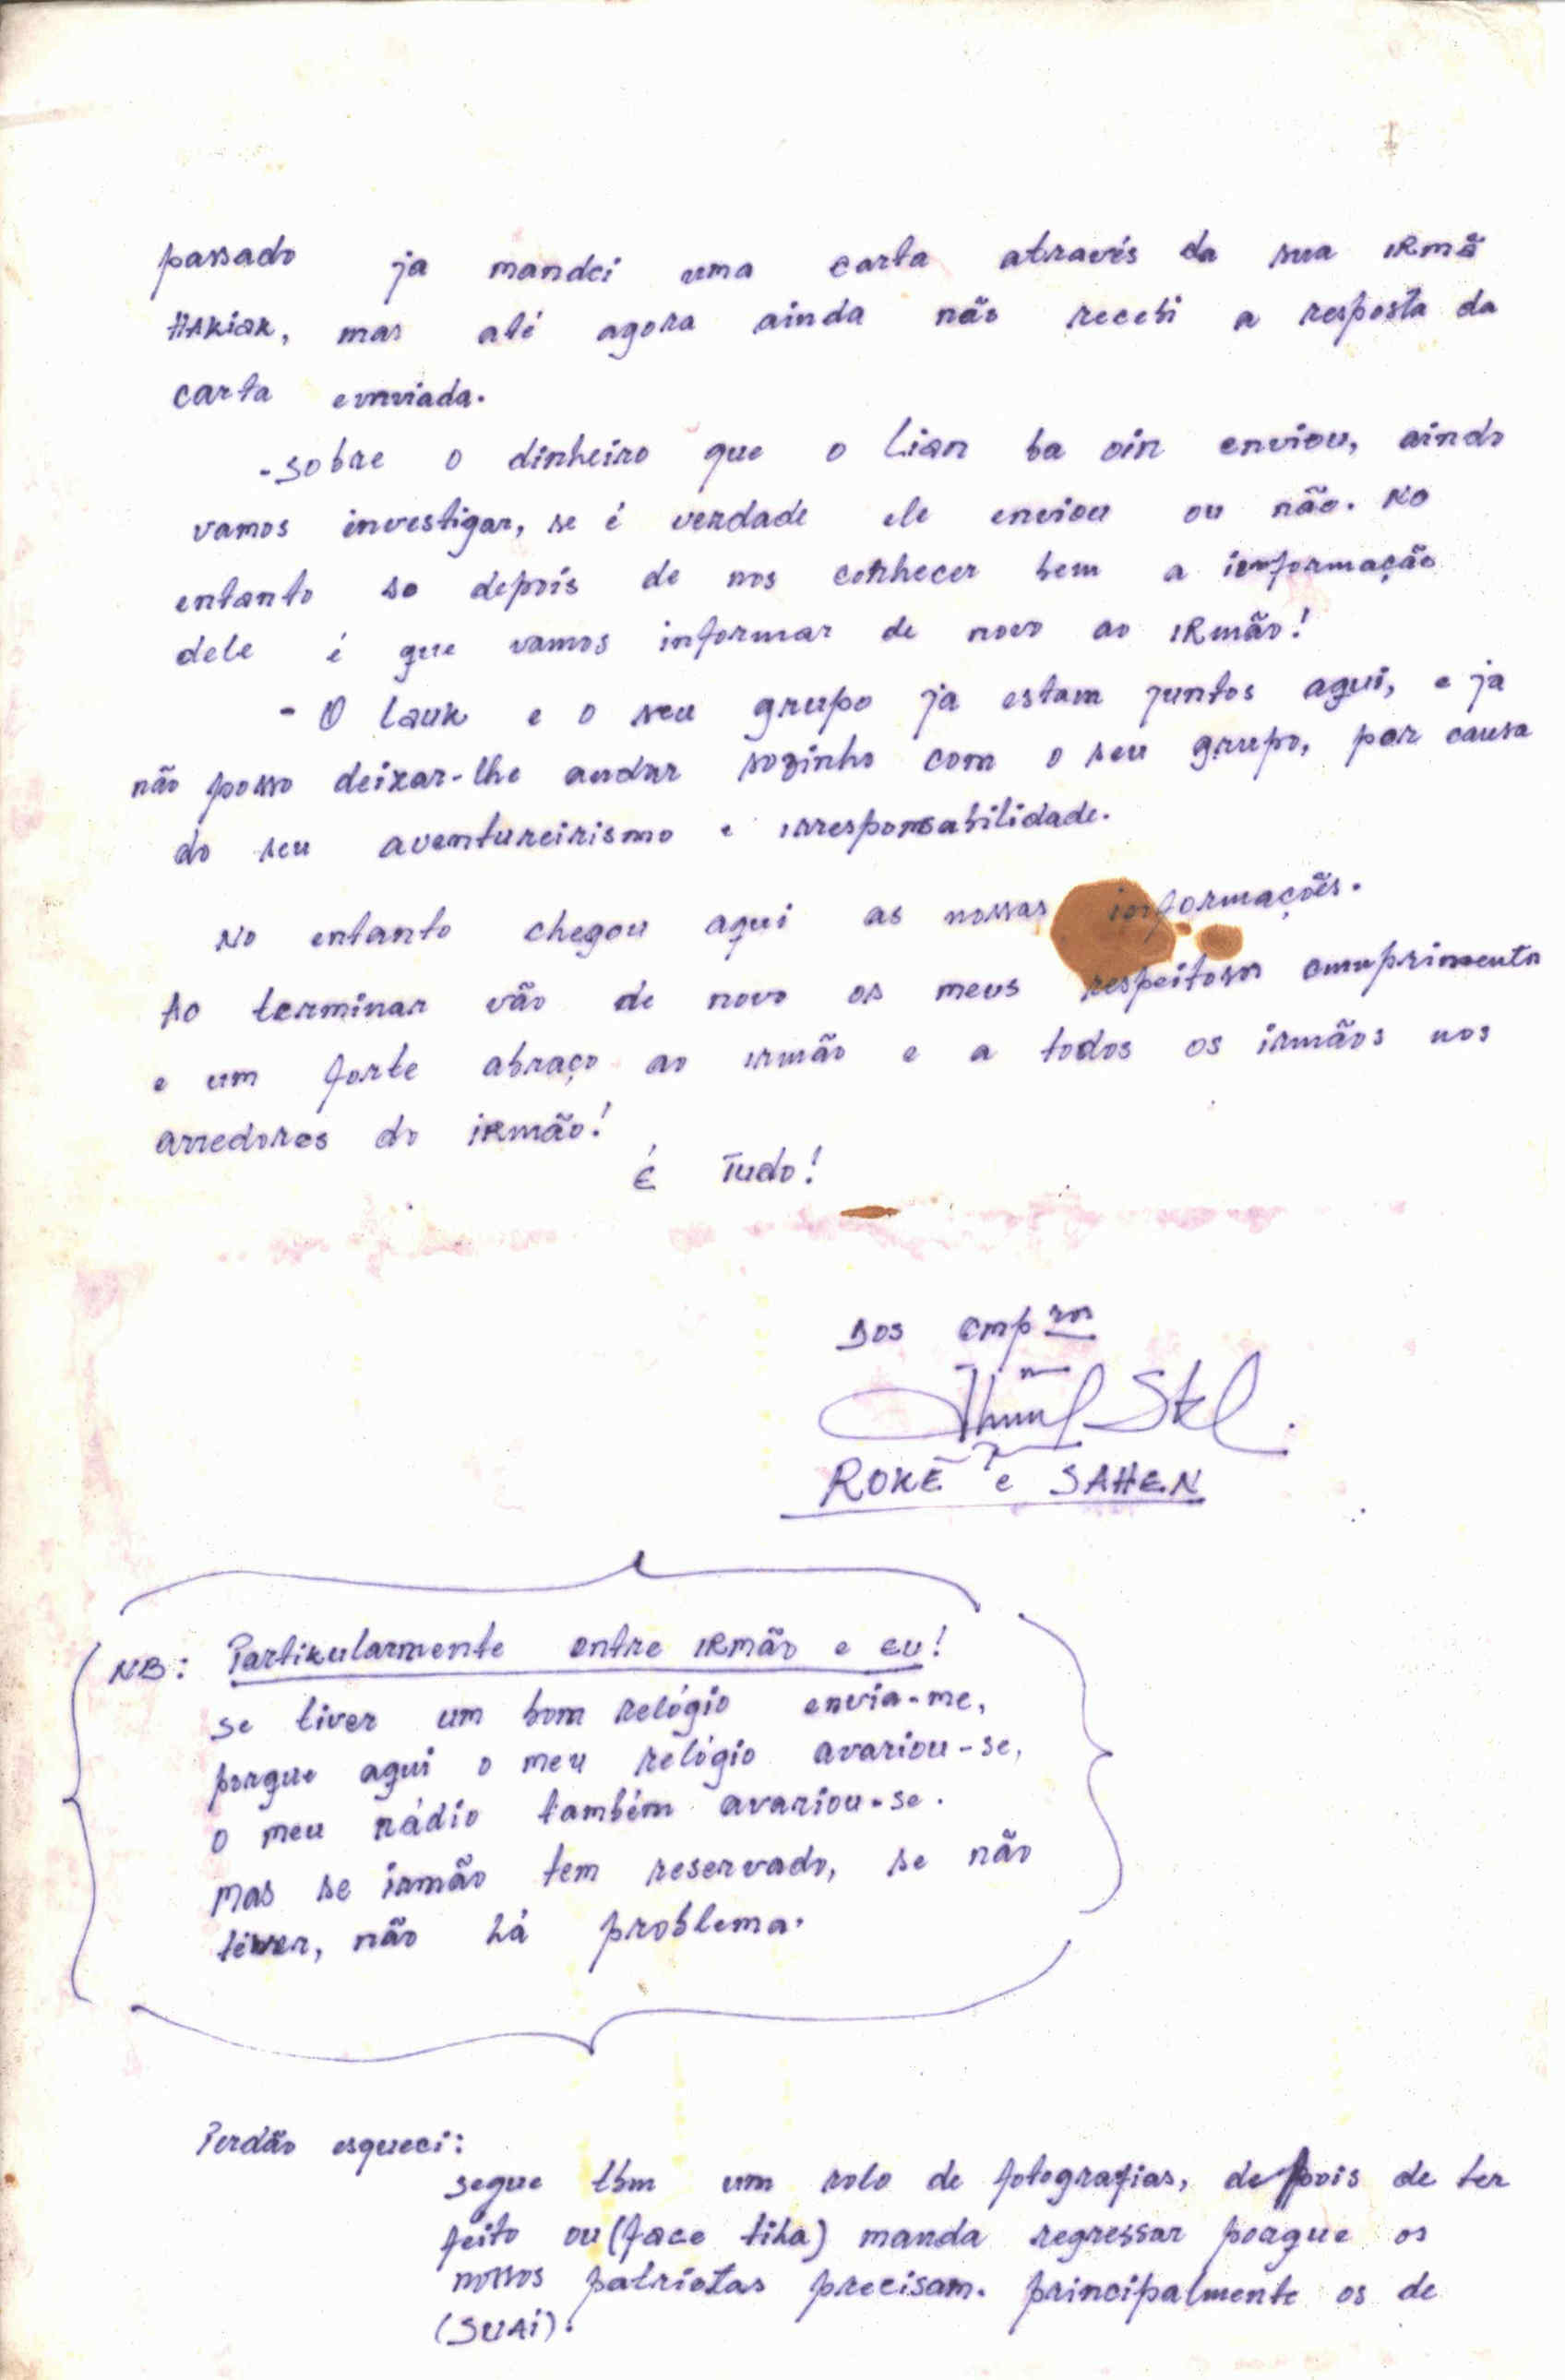 passado ja mandei uma carta através da sua irmã
HAKiak, mas até agora ainda não recebi a resposta da
carta enviada.
-sobre o dinheiro que o Lian ba oin enviou, ainda
vamos investigar, se é verdade ele enviou ou não. No
entanto so depois de nos conhecer bem a informação
dele é que vamos informar de novo ao irmão!
- O Lauk e o seu grupo ja estam juntos aqui, e ja
não posso deixar-lhe andar sozinho com o seu grupo, por causa
do seu aventureirismo e irresponsabilidade.
No entanto chegou aqui as nossas informações.
Ao terminar vão de novo os meus respeitosos cumprimentos
e um forte abraço ao irmão e a todos os irmãos nos
arredores do irmão!
É Tudo!
Dos cmpros
ROKE e SAHEN
NB: Partikularmente entre irmão e eu!
se tiver um bom relógio envia-me,
porque aqui o meu relógio avariou-se,
o meu rádio também avariou-se.
mas se irmão tem reservado, se não
tiver, não há problema.
Perdão esqueci:
segue tbm um rolo de fotografias, depois de ter
feito ou (face tiha) manda regressar porque os
nossos patriotas precisam. principalmente os de
(SUAi).